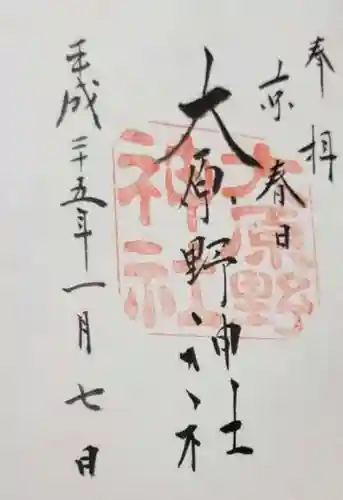 奉拝
京春日
大原野神社
平成二十五年一月七日
大原野
神社